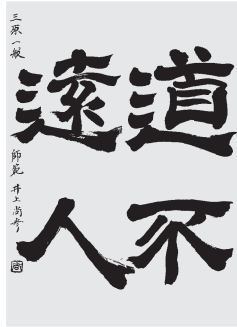 道不
遠人
三原一般 師範 井上尚奇